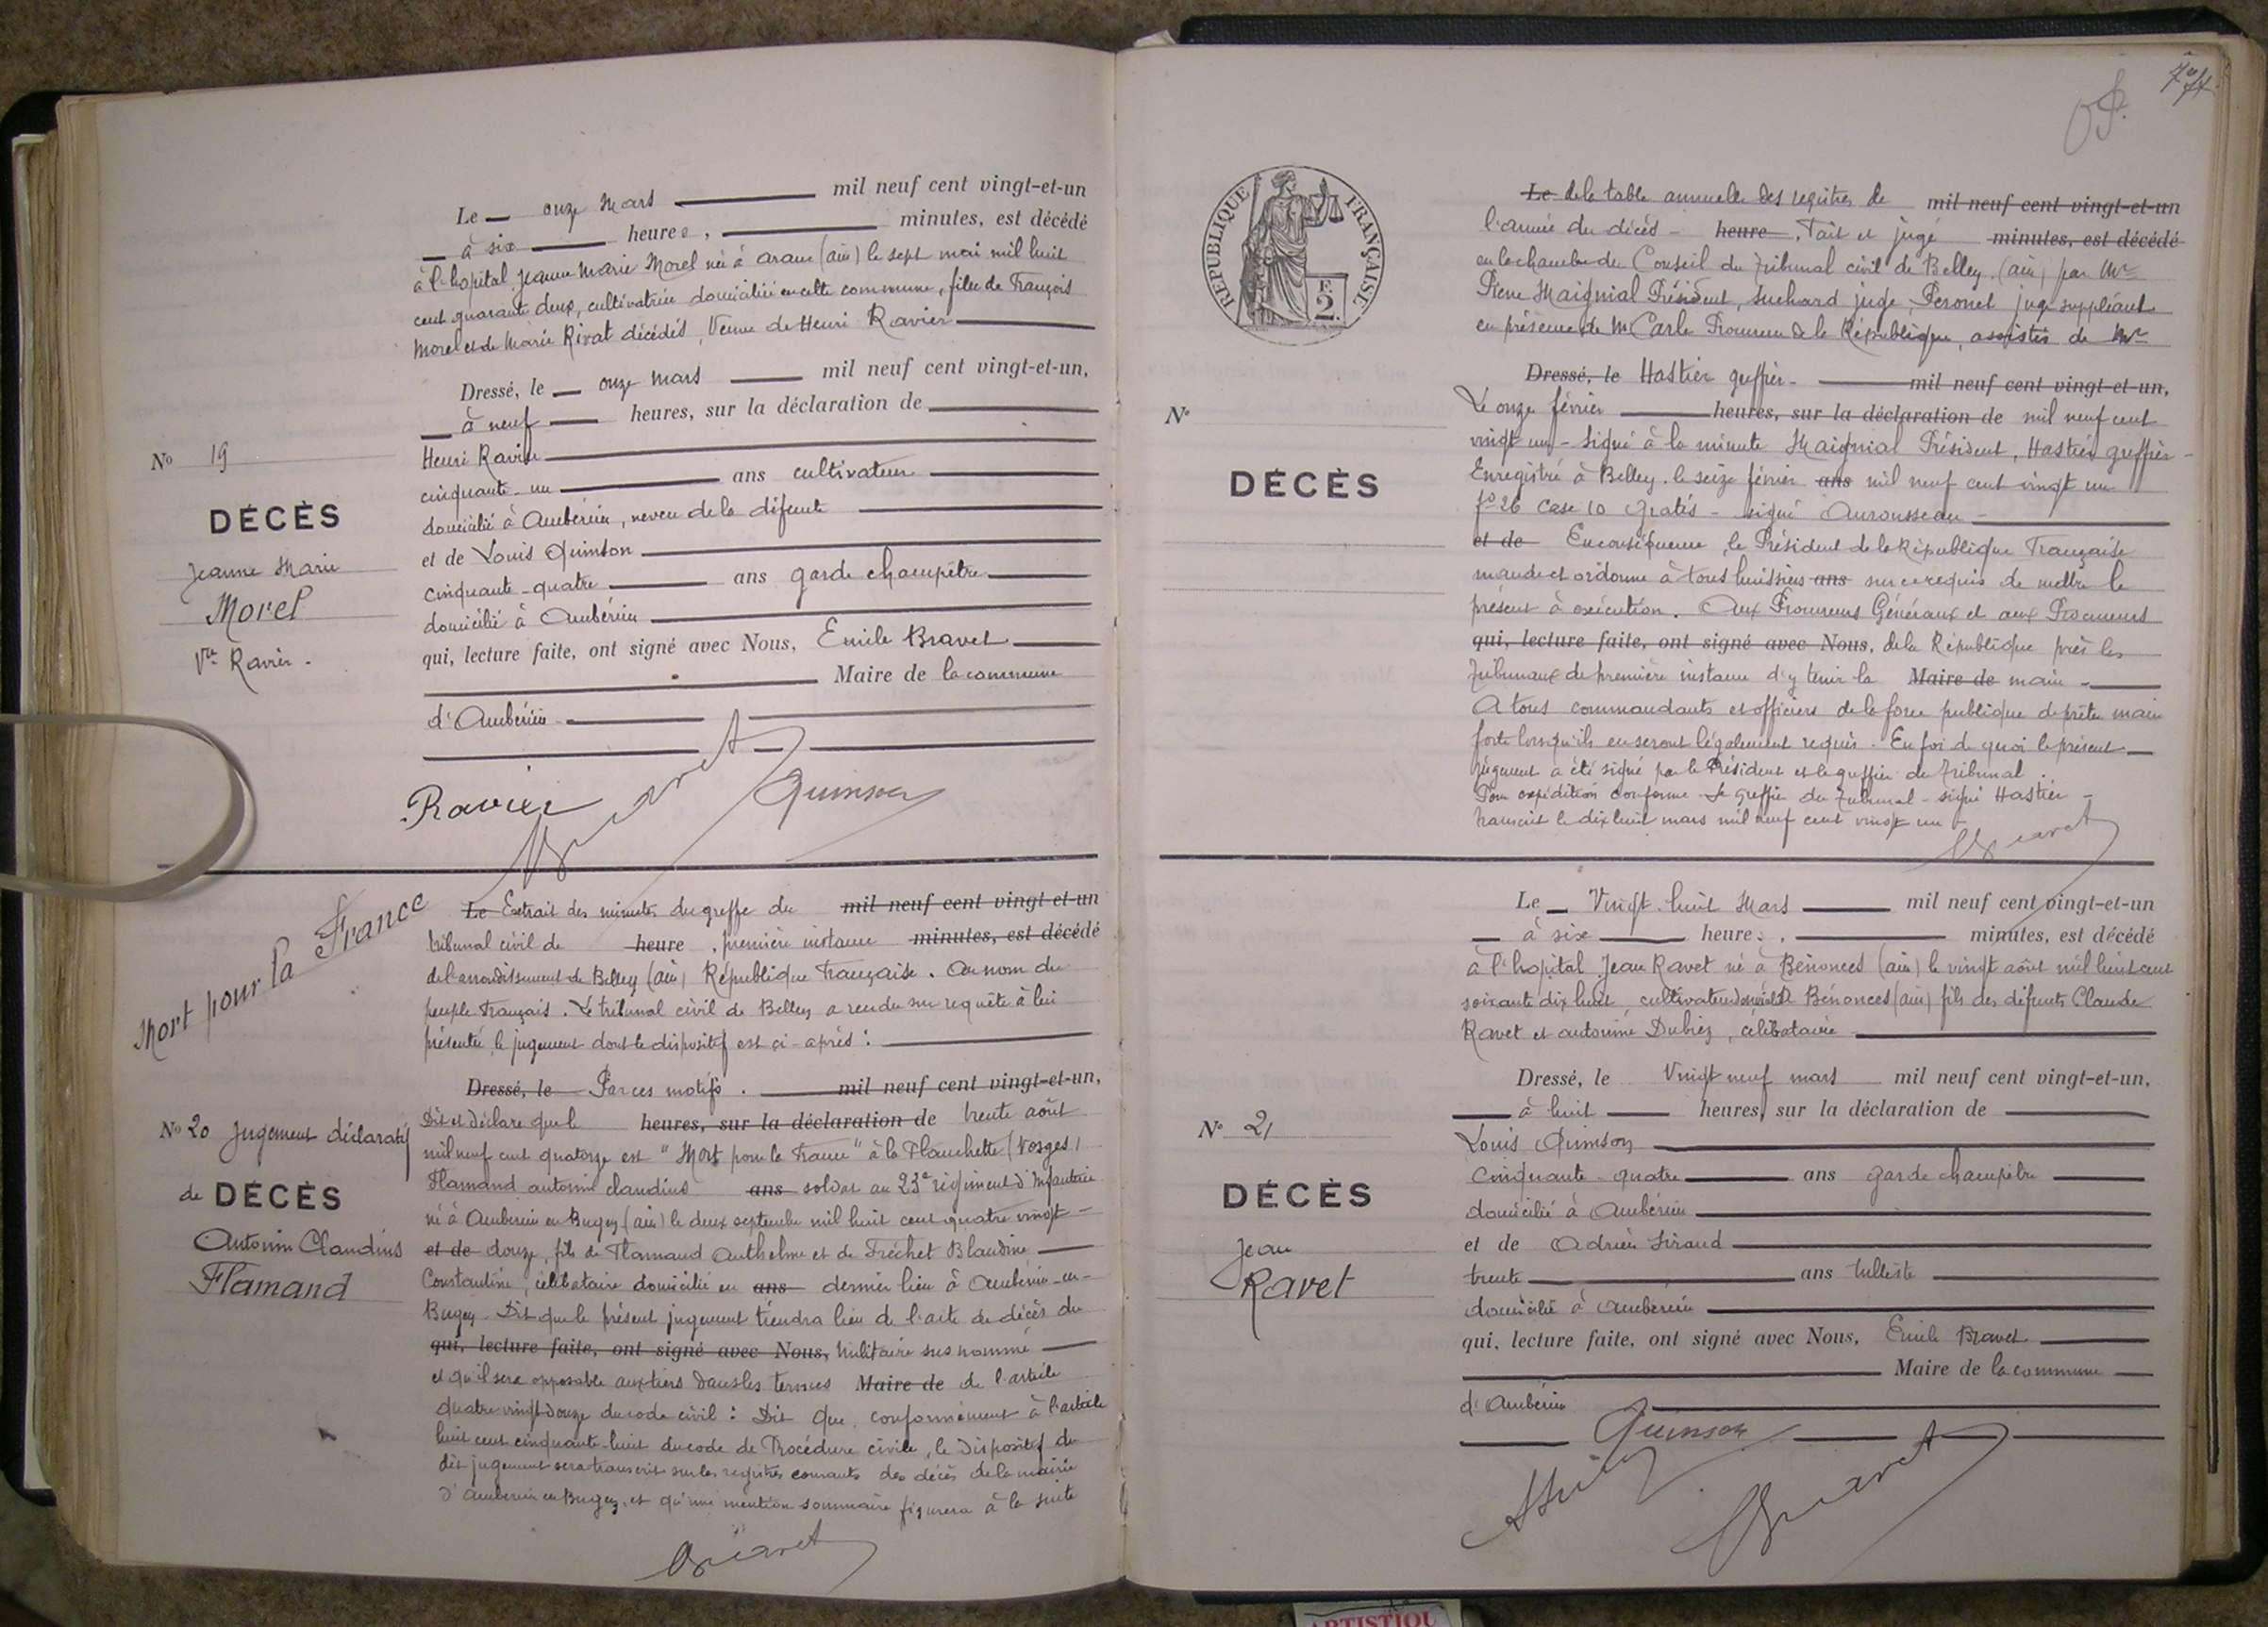 Le onze Mars mil neuf cent vingt-et-un
à six heures, minutes, est décédé
à l'hopital Jeanne Marie Morel née à Aranc (ain) le sept mai mil huit
cent quarante deux, cultivatrice domiciliée en cette commune, fille de François
Morel et de Marie Rivat décédés, Veuve de Henri Ravier
Dressé, le onze mars mil neuf cent vingt-et-un,
à neuf heures, sur la déclaration de
Nº 19
Henri Ravier
cinquante-un ans cultivateur
DÉCÈS
domicilié à Ambérieu, neveu de la défunte
et de Louis Quinson
Jeanne Marie
cinquante-quatre ans garde champêtre
Morel
domicilié à Ambérieu
Vve Ravier.
qui, lecture faite, ont signé avec Nous, Emile Bravet
Maire de la commune
d'Ambérieu
Ravier Bravet Quinson
Mort pour la France
Le Extrait des minutes du greffe du mil neuf cent vingt-et-un
tribunal civil de heure, première instance minutes, est décédé
de l'arrondissement de Belley (ain) République Française. Au nom du
peuple Français. Le tribunal civil de Belley a rendu sur requête à lui
présentée le jugement dont le dispositif est ci-après :
Dressé, le Par ces motifs. mil neuf cent vingt-et-un,
Nº 20 Jugement déclaratif
Dit et déclare que le heures, sur la déclaration de trente août
mil neuf cent quatorze est "Mort pour la France" à la Planchette (Vosges)
de DÉCÈS
Flamand antonin claudius ans soldat au 23e régiment d'Infanterie
né à Amberieu en Bugey (ain) le deux septembre mil huit cent quatre vingt-
Antonin Claudius
et de douze, fils de Flamand Anthelme et de Fréchet Blandine
Flamand
Constantine, célibataire domicilié en ans dernier lieu à Ambérieu-en-
Bugey. Dit que le présent jugement tiendra lieu de l'acte de décès du
qui, lecture faite, ont signé avec Nous, militaire sus nommé
et qu'il sera opposable aux tiers dans les termes Maire de de l'article
quatre vingt douze du code civil : Dit que conformément à l'article
huit cent cinquante-huit du code de Procédure civile, le dispositif du
dit jugement sera transcrit sur les registres courants des décès de la mairie
d'Amberieu en Bugey, et qu'une mention sommaire figurera à la suite
Bravet
RÉPUBLIQUE FRANÇAISE
F.
2.
Le de la table annuelle des registres de mil neuf cent vingt-et-un
l'année du décès - heure, Fait et jugé minutes, est décédé
en la chambre du Conseil du Tribunal civil de Belley (ain) par Mr
Pierre Maignial Président, Suchard juge, Peronet juge suppléant
en présence de M. Carle Procureur de la République, assistés de Mr
Dressé, le Hastier greffier - mil neuf cent vingt-et-un,
Nº
Le onze février heures, sur la déclaration de mil neuf cent
vingt un - Signé à la minute Maignial Président, Hastier greffier -
DÉCÈS
Enregistré à Belley. le seize février ans mil neuf cent vingt un
fº 26 case 10 Gratis - signé Aurousseau -
et de En conséquence, le Président de la République Française
mande et ordonne à tous huissiers ans sur ce requis de mettre le
présent à exécution. Aux Procureurs Généraux et aux Procureurs
qui, lecture faite, ont signé avec Nous, de la République près les
Tribunaux de première instance d'y tenir la Maire de main -
A tous commandants et officiers de la force publique de prêter main
forte lorsqu'ils en seront légalement requis. En foi de quoi le présent
jugement a été signé par le Président et le greffier du Tribunal.
Pour expédition conforme. Le Greffier du Tribunal - signé Hastier -
Transcrit le dix huit mars mil neuf cent vingt un
Bravet
Le Vingt-huit Mars mil neuf cent vingt-et-un
à six heures, minutes, est décédé
à l'hopital Jean Ravet né à Bénonces (ain) le vingt août mil huit cent
soixante dix huit, cultivateur domicilié à Bénonces (ain) fils des défunts Claude
Ravet et antonine Dubiez, célibataire
Dressé, le Vingt neuf mars mil neuf cent vingt-et-un,
Nº 21
à huit heures, sur la déclaration de
Louis Quinson
DÉCÈS
cinquante-quatre ans garde champêtre
domicilié à Ambérieu
Jean
et de Adrien Siraud
Ravet
trente ans tulliste
domicilié à Ambérieu
qui, lecture faite, ont signé avec Nous, Emile Bravet
Maire de la commune
d'Ambérieu
Quinson
Bravet